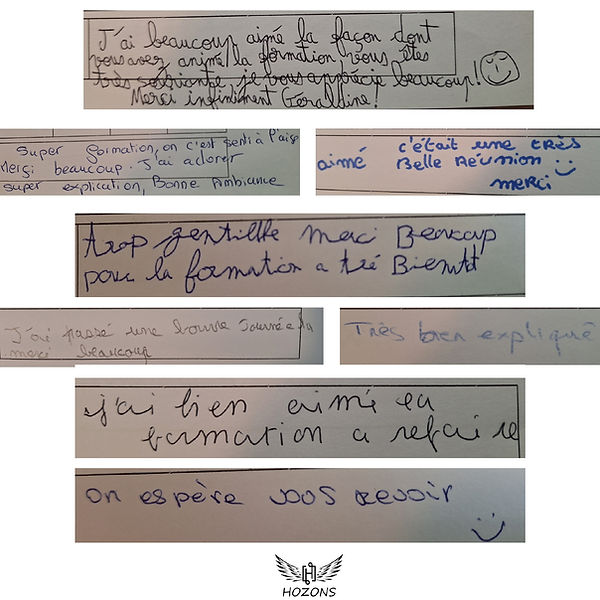 J'ai beaucoup aimé la façon dont
vous avez animé la formation vous êtes
très souriante je vous apprécie beaucoup!
Merci infiniment Géraldine!
Super formation, on c'est senti à l'aise
Merci beaucoup. J'ai adorer
super explication, Bonne Ambiance
c'était une très
aimé Belle Réunion
merci
trop gentille merci Beaucoup
pour la formation a tré Bientot
J'ai passé une bonne Journée
merci beaucoup
Très bien expliqué
j'ai bien aimé la
formation a refaire
on espère vous revoir
HOZONS